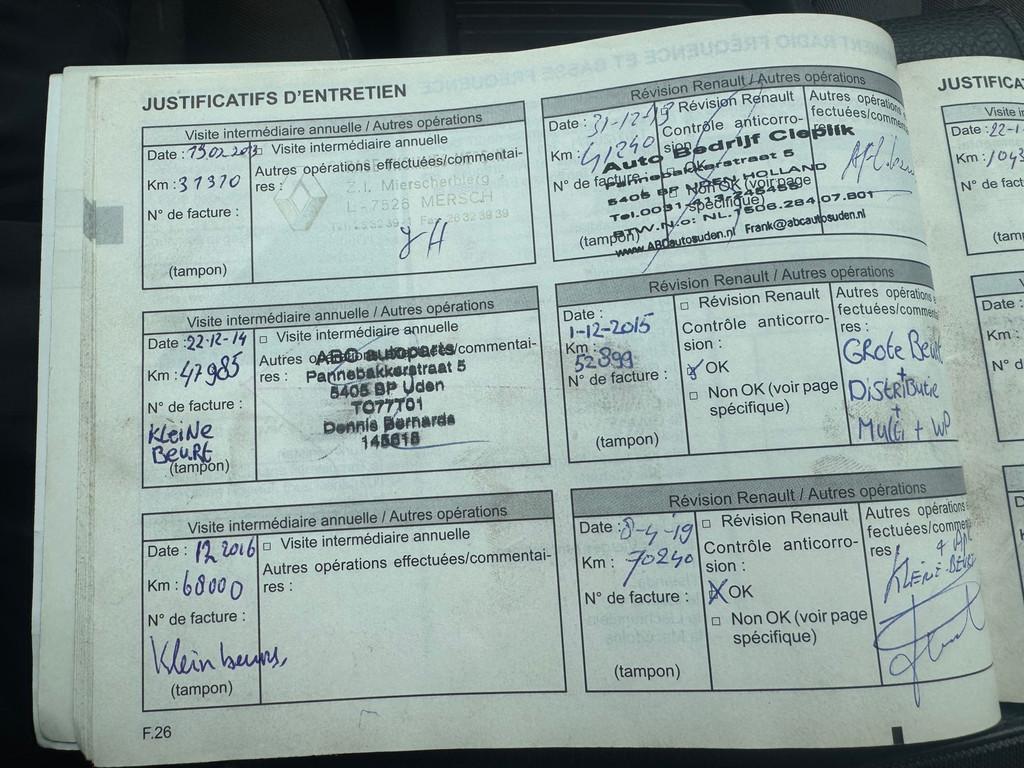 JUSTIFICATIFS D'ENTRETIEN
Visite intermédiaire annuelle / Autres opérations
Date :
Km : 31370
N° de facture :
(tampon)
□ Visite intermédiaire annuelle
Autres opérations effectuées/commentai-
res :
Z.I. Mierscherbierg
L - 7526 MERSCH
Révision Renault / Autres opérations
Date : 31-12-13
Km : 41240
N° de facture
(tampon)
Révision Renault
Contrôle anticorro-
sion :
OK
Non OK (voir page
spécifique)
Autres opérations
Auto Bedrijf Cieplik
Pannebakkerstraat 5
5405 BP UDEN HOLLAND
Tel.0031
www.ABCautosuden.nl Frank@abcautosuden.nl
Visite intermédiaire annuelle / Autres opérations
Date : 22-12-14
Km : 47985
N° de facture :
KLEINE
BEURT
(tampon)
□ Visite intermédiaire annuelle
Autres opérations effectuées/commentai-
res :
ABC autoparts
Pannebakkerstraat 5
5405 BP Uden
TO77T01
Dennis Bernards
145615
Révision Renault / Autres opérations
Date :
1-12-2015
Km :
52899
N° de facture :
(tampon)
□ Révision Renault
Contrôle anticorro-
sion :
OK
□ Non OK (voir page
spécifique)
Autres opérations
fectuées/commen
res :
GROTE BEURT
+
DISTRIBUTIE
+
MULTI + WP
Visite intermédiaire annuelle / Autres opérations
Date : 12 2016
Km : 68000
N° de facture :
(tampon)
□ Visite intermédiaire annuelle
Autres opérations effectuées/commentai-
res :
Révision Renault / Autres opérations
Date : 8-4-19
Km : 70240
N° de facture :
(tampon)
□ Révision Renault
Contrôle anticorro-
sion :
OK
□ Non OK (voir page
spécifique)
Autres opérations
fectuées/commen
res :
KLEINE-BEURT
F.26
JUSTIFICA
Date :
Km :
N° de fact
(tam
Date :
Km :
N° d